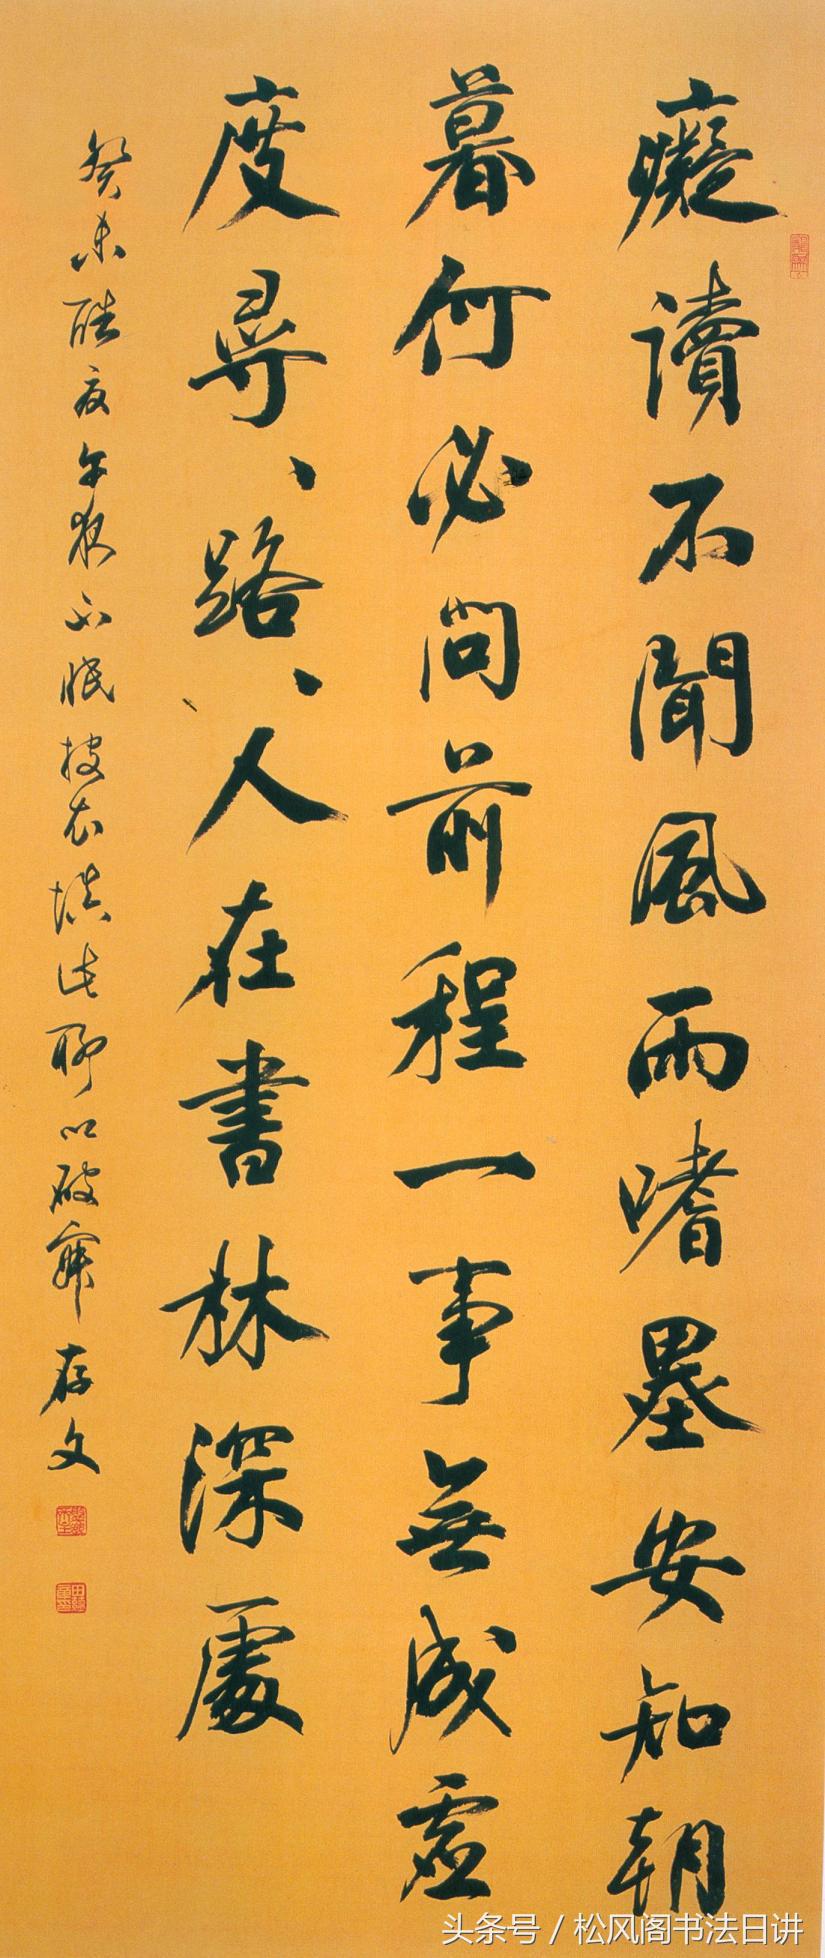 癡讀不聞風雨嗜墨安知朝
暮何必問前程一事無成虛
度尋、路、人在書林深處
癸未酷夏午夜不眠披衣填此聊以破寐存文
头条号 / 松风阁书法日讲